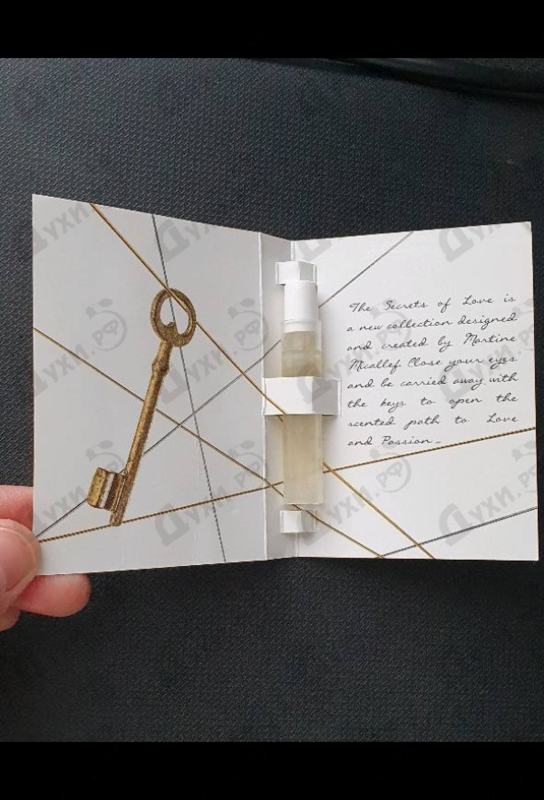 The Secrets of Love is
a new collection designed
and created by Martine
Micallef. Close your eyes
and be carried away with
the keys to open the
scented path to Love
and Passion...
Духи.рф